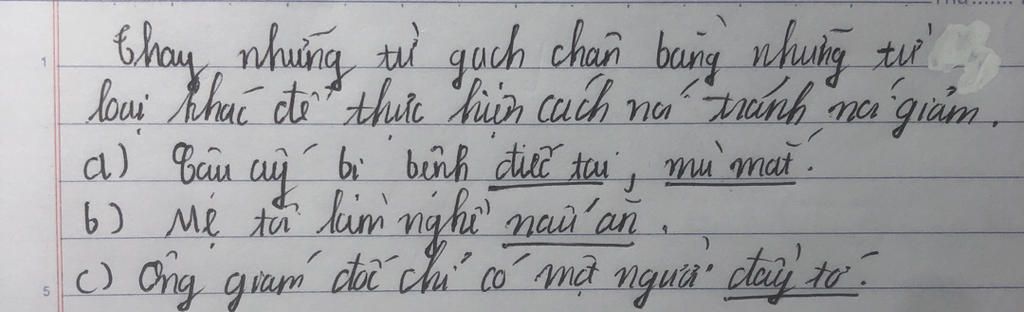 Thay những từ gạch chân bằng những từ
loại khác để thực hiện cách nói tránh nói giảm.
a) Cậu ấy bị bệnh điếc tai, mù mắt.
b) Mẹ tôi làm nghề nấu ăn.
c) Ông giám đốc chỉ có một người đầy tớ.